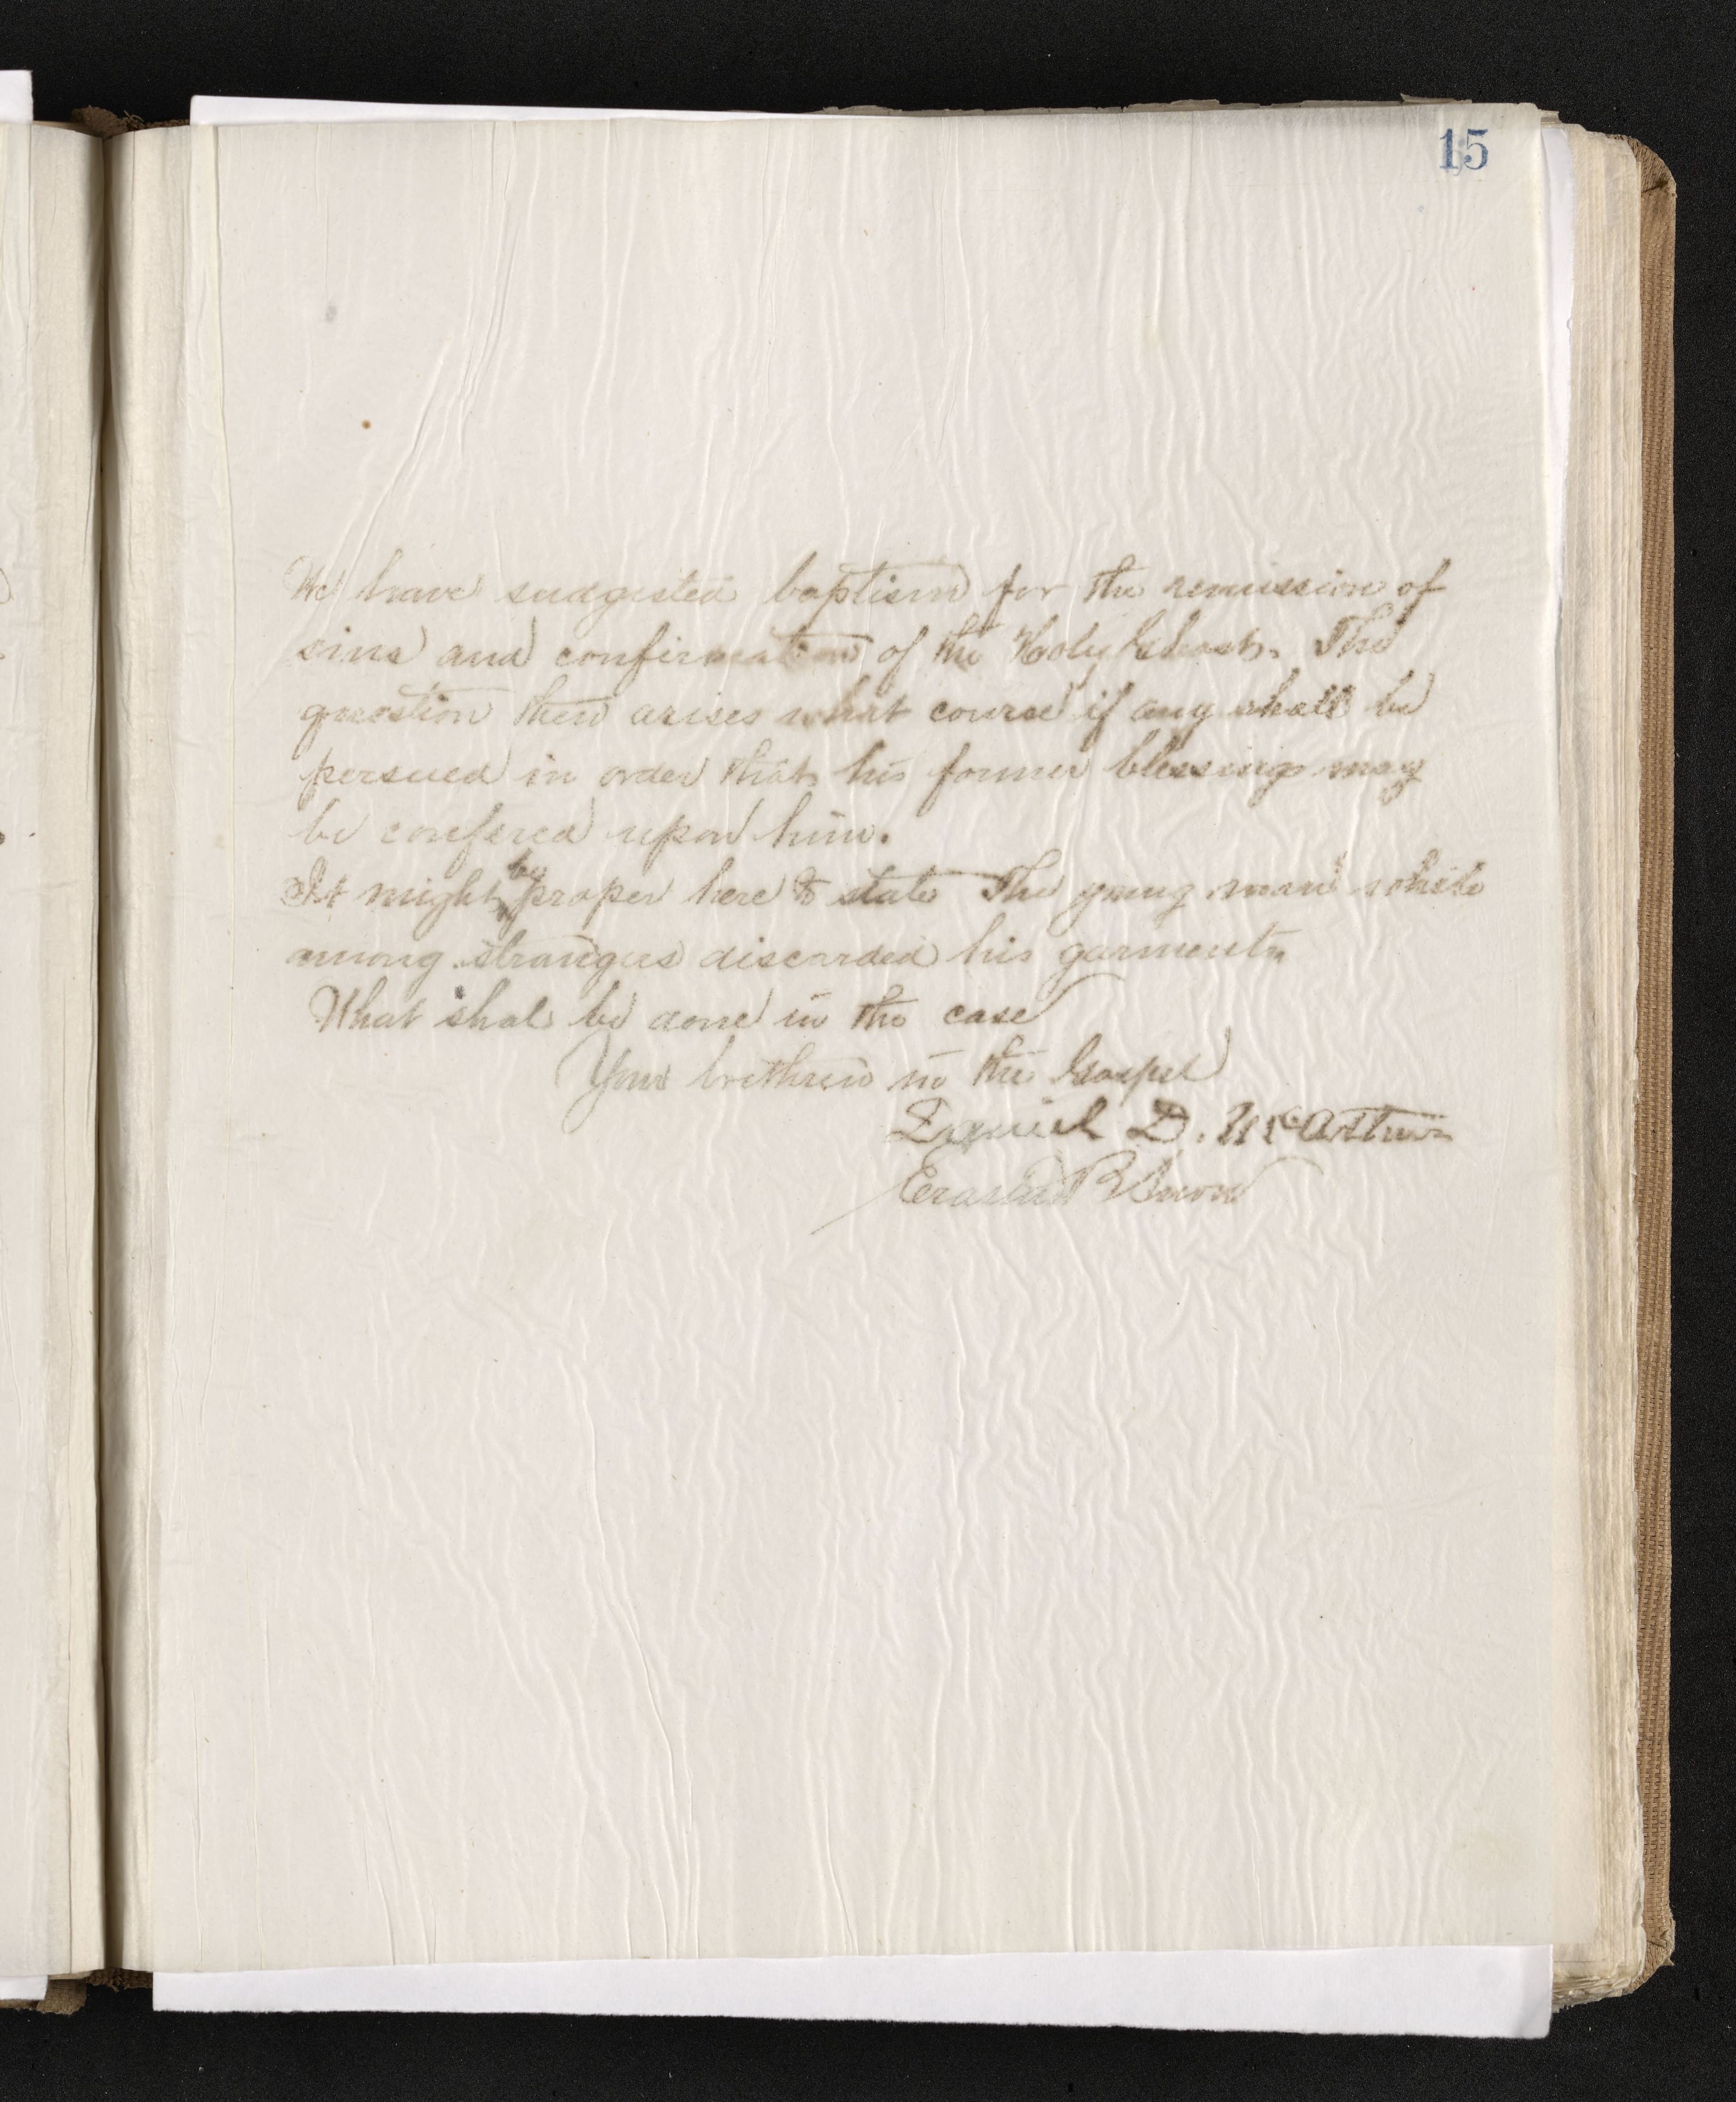 15
We have sudgested baptism for the remission of
sins and confirmation of the Holy Ghost. The
question then arises what course if any shall be
persued in order that his former blessings may
be confered upon him.
It might be proper here to state The young man while
among strangers discarded his garments
What shal be done in the case
Your brethren in the Gospel
D. McArthur
Erastus B Snow